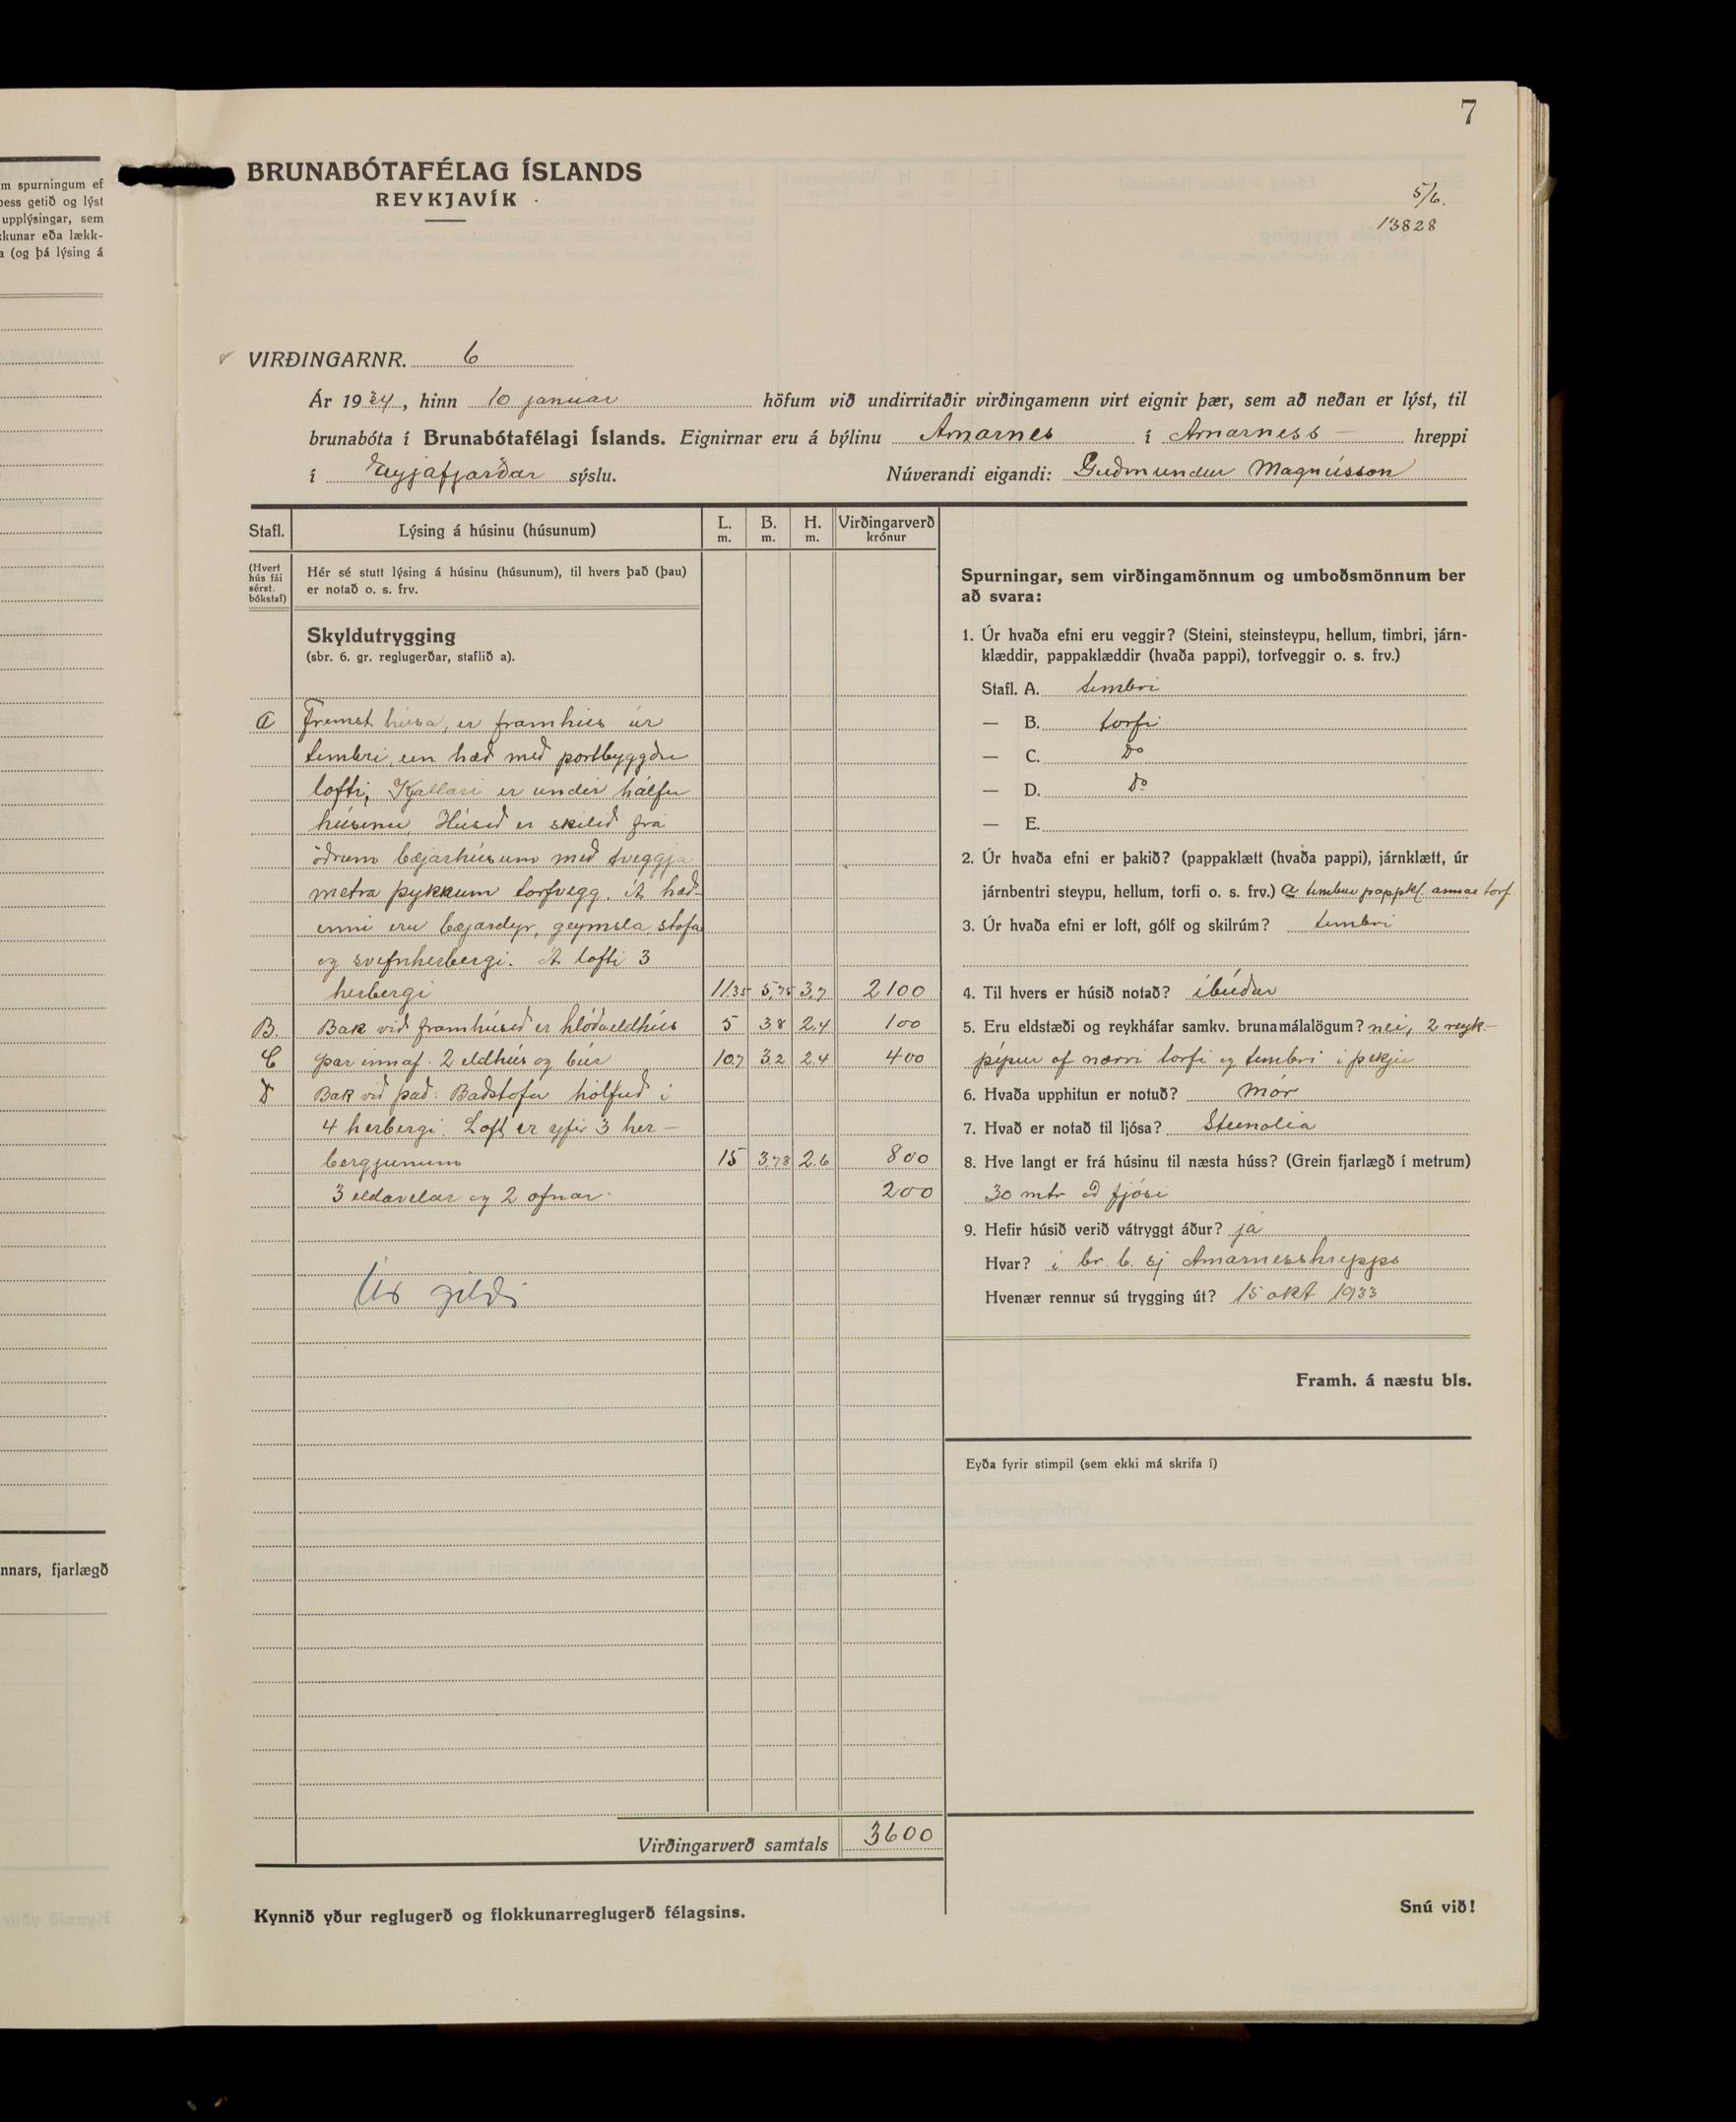 m spurningum ef
þess getið og lýst
upplýsingar, sem
kkunar eða lækk-
a (og þá lýsing á
nnars, fjarlægð
7
BRUNABÓTAFÉLAG ÍSLANDS
REYKJAVÍK
5/6.
13828
VIRÐINGARNR. 6
Ár 1934, hinn 10 januar höfum við undirritaðir virðingamenn virt eignir þær, sem að neðan er lýst, til
brunabóta í Brunabótafélagi Íslands. Eignirnar eru á býlinu Arnarnes í Arnarness- hreppi
í Eyjafjarðar sýslu. Núverandi eigandi: Guðmundur Magnússon
Stafl. Lýsing á húsinu (húsunum) L. m. B. m. H. m. Virðingarverð krónur
(Hvert hús fái sérst. bókstaf)
Hér sé stutt lýsing á húsinu (húsunum), til hvers það (þau)
er notað o. s. frv.
Skyldutrygging
(sbr. 6. gr. reglugerðar, staflið a).
A Fremst húsa, er framhús úr
timbri, ein hæð með portbyggðu
lofti, Kjallari er undir hálfu
húsinu, Húsið er skilið frá
öðrum bæjarhúsum með tveggja
metra þykkum torfvegg. Á hæð-
inni eru bæjardyr, geymsla, stofa
og svefnherbergi. Á lofti 3
herbergi 11.35 5,75 3,7 2100
B. Bak við framhúsið er hlóðaeldhús 5 3,8 2.4 100
C Þar innaf. 2 eldhús og búr 10.7 3.2 2.4 400
D Bak við það: Baðstofa hólfuð í
4 herbergi. Loft er yfir 3 her-
bergjunum 15 3,78 2.6 800
3 eldavelar og 2 ofnar 200
Úr gildi
Virðingarverð samtals 3600
Kynnið yður reglugerð og flokkunarreglugerð félagsins.
Spurningar, sem virðingamönnum og umboðsmönnum ber
að svara:
1. Úr hvaða efni eru veggir? (Steini, steinsteypu, hellum, timbri, járn-
klæddir, pappaklæddir (hvaða pappi), torfveggir o. s. frv.)
Stafl. A. timbri
— B. torfi
— C. Do
— D. Do
— E.
2. Úr hvaða efni er þakið? (pappaklætt (hvaða pappi), járnklætt, úr
járnbentri steypu, hellum, torfi o. s. frv.) A timbur pappkl. annar torf
3. Úr hvaða efni er loft, gólf og skilrúm? timbri
4. Til hvers er húsið notað? íbúðar
5. Eru eldstæði og reykháfar samkv. brunamálalögum? nei, 2 reyk-
pípur of nærri torfi og timbri í þekju
6. Hvaða upphitun er notuð? Mór
7. Hvað er notað til ljósa? Steinolia
8. Hve langt er frá húsinu til næsta húss? (Grein fjarlægð í metrum)
30 mtr að fjósi
9. Hefir húsið verið vátryggt áður? já
Hvar? í br. b. sj Arnarnesshrepps
Hvenær rennur sú trygging út? 15 okt 1933
Framh. á næstu bls.
Eyða fyrir stimpil (sem ekki má skrifa í)
Snú við!